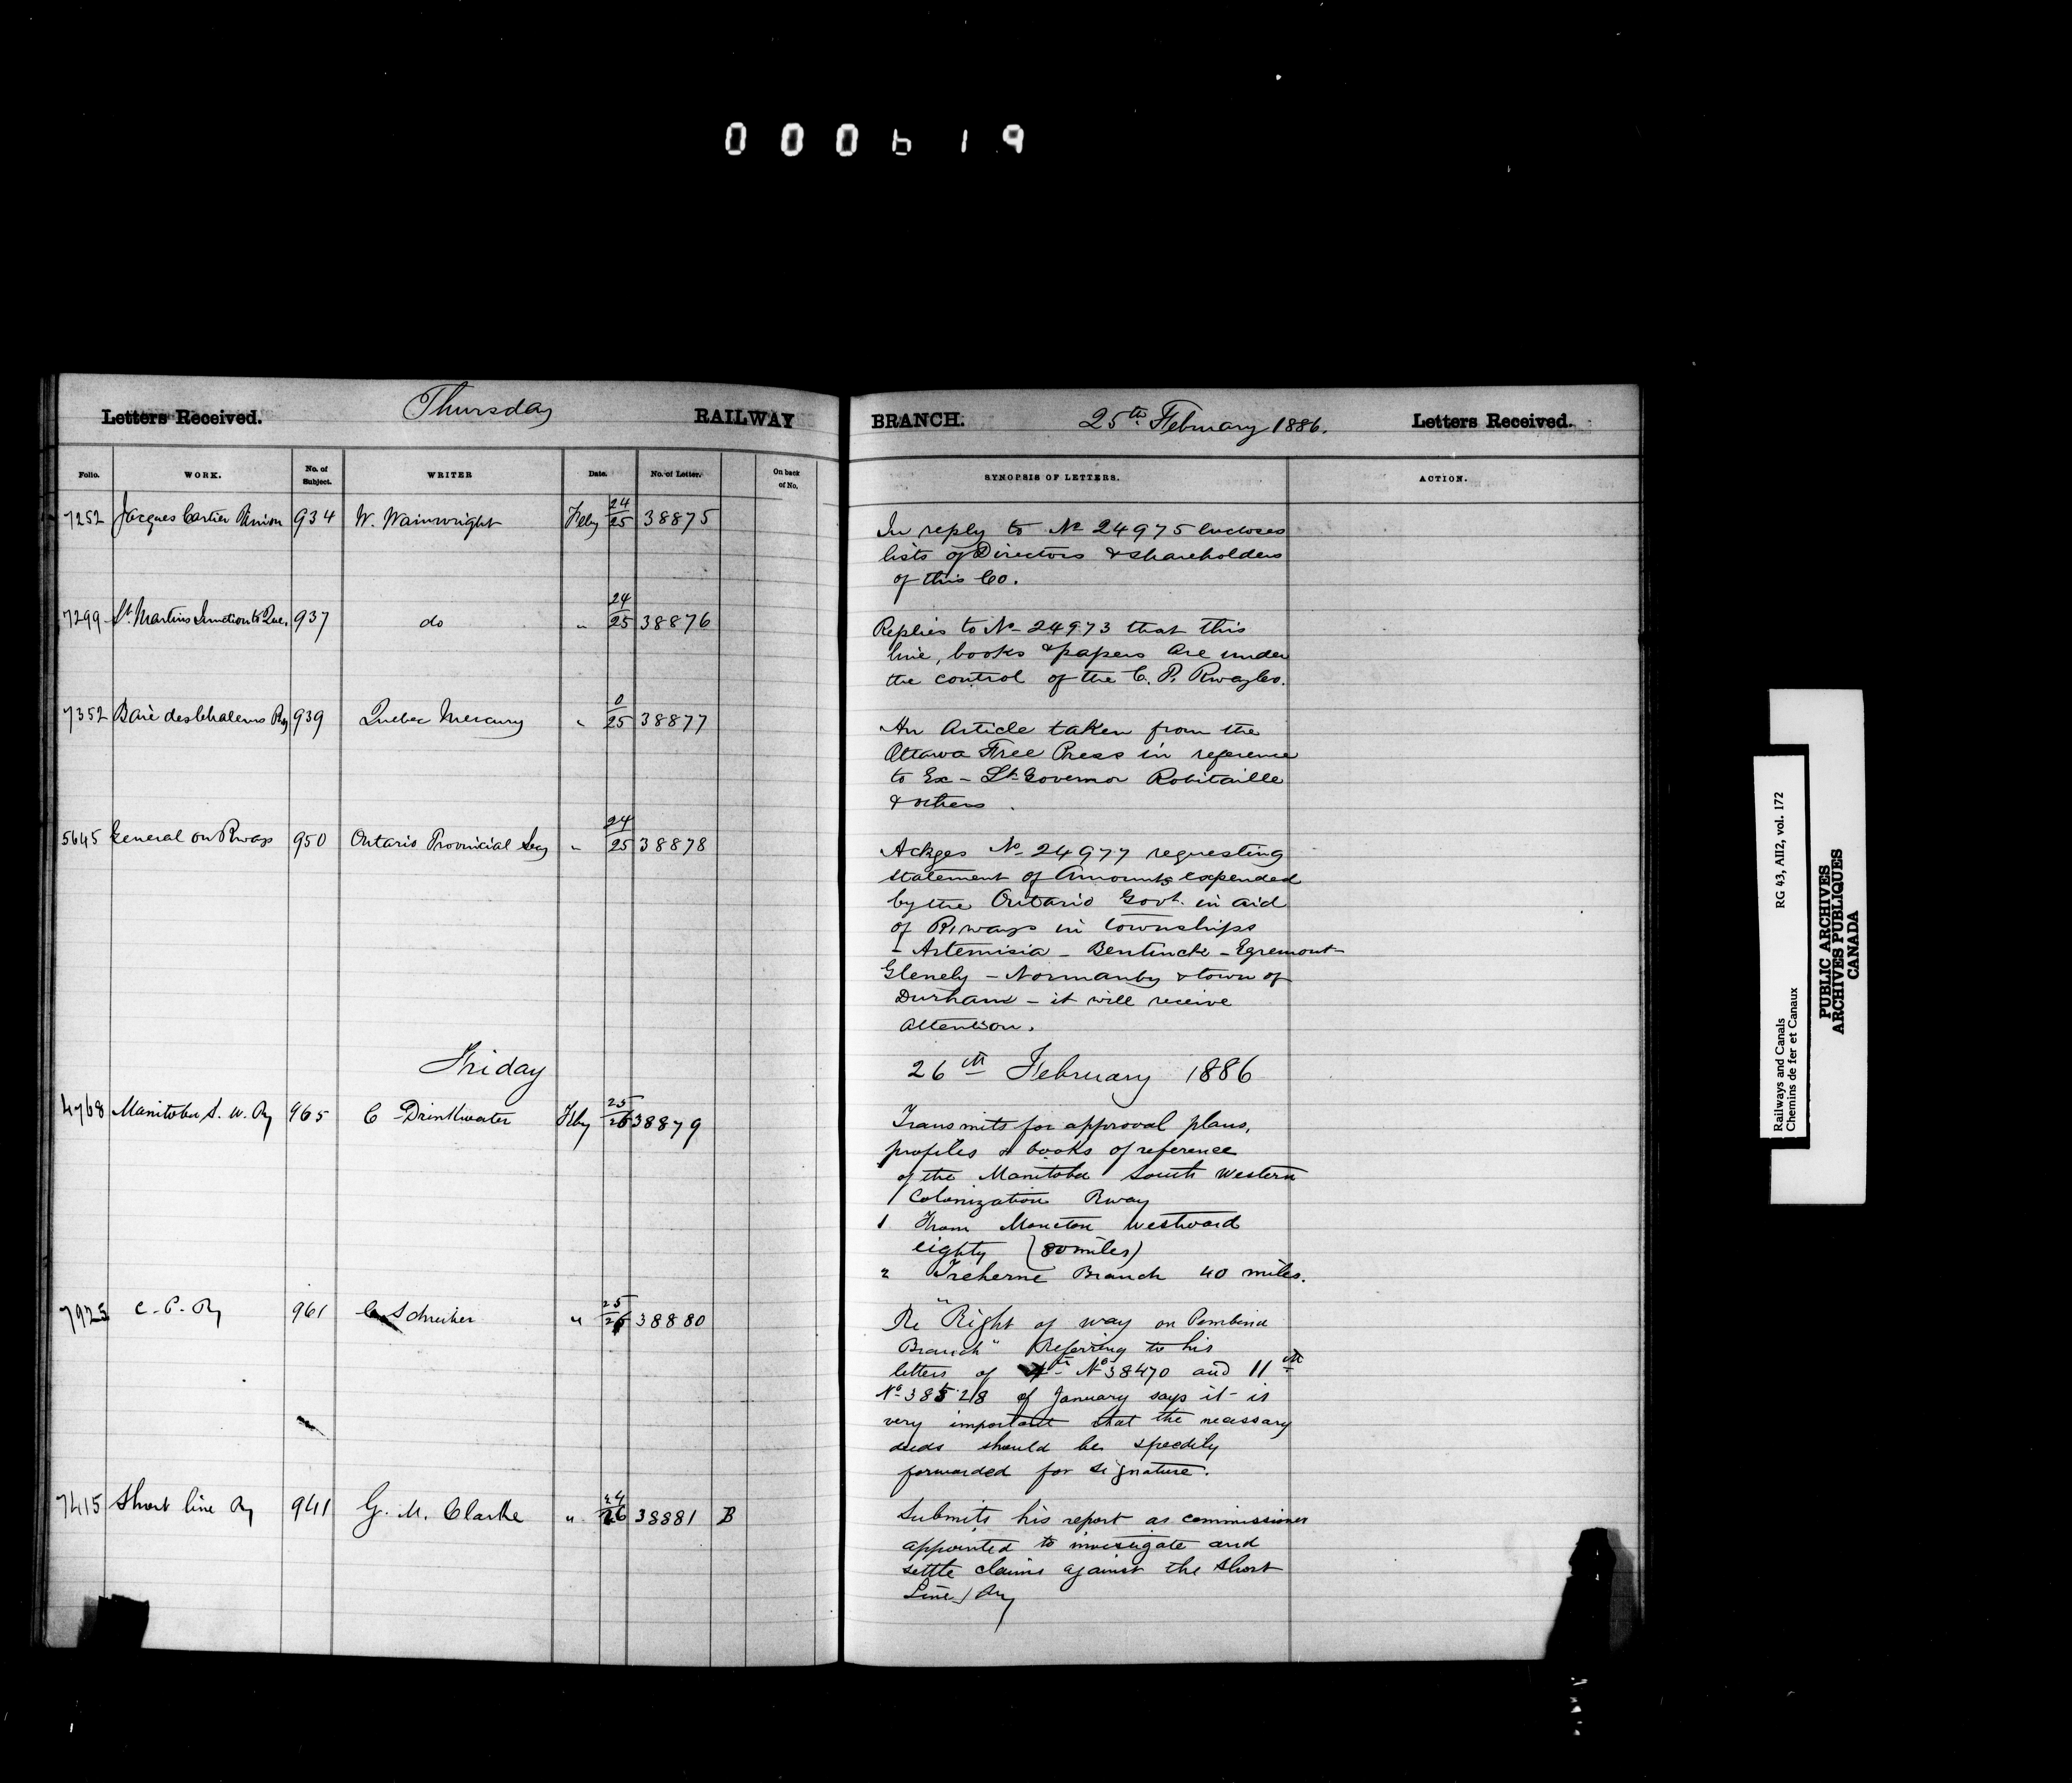 000619
Letters Received. Thursday RAILWAY BRANCH. 25th February 1886. Letters Received.
Folio. WORK. No. of Subject. WRITER Date. No. of Letter. On back of No. SYNOPSIS OF LETTERS. ACTION.
7252 Jacques Cartier Union 934 W. Wainwright Feby 24/25 38875
In reply to No 24975 encloses
lists of Directors & shareholders
of this Co.
7299 St. Martins Junction to Que. 937 do " 24/25 38876
Replies to No 24973 that this
line, books & papers are under
the control of the C. P. Rway Co.
7352 Baie des Chaleurs Ry 939 Quebec Mercury " 0/25 38877
An Article taken from the
Ottawa Free Press in reference
to Ex-Lt Governor Robitaille
& others.
5645 General on Rways 950 Ontario Provincial Secy " 24/25 38878
Ackges No 24977 requesting
statement of Amounts expended
by the Ontario Govt. in aid
of Rways in townships
- Artemisia - Bentinck - Egremont -
Glenely - Normanby & town of
Durham - it will receive
attention.
Friday 26th February 1886
4768 Manitoba S. W. Ry 965 C Drinkwater Feby 25/26 38879
Transmits for approval plans,
profiles & books of reference
of the Manitoba South Western
Colonization Rway
1 From Manitou westward
eighty (80 miles)
2 Treherne Branch 40 miles.
7925 C. P. Ry 961 C Schreiber " 25/26 38880
Re "Right of way on Pembina
Branch" Referring to his
letters of 4th No 38470 and 11th
No 38528 of January says it is
very important that the necessary
deeds should be speedily
forwarded for signature.
7415 Short line Ry 941 G. M. Clarke " 24/26 38881 B
Submits his report as commissioner
appointed to investigate and
settle claims against the Short
Line Ry
Railways and Canals RG 43, AII2, vol. 172
Chemins de fer et Canaux
PUBLIC ARCHIVES
ARCHIVES PUBLIQUES
CANADA